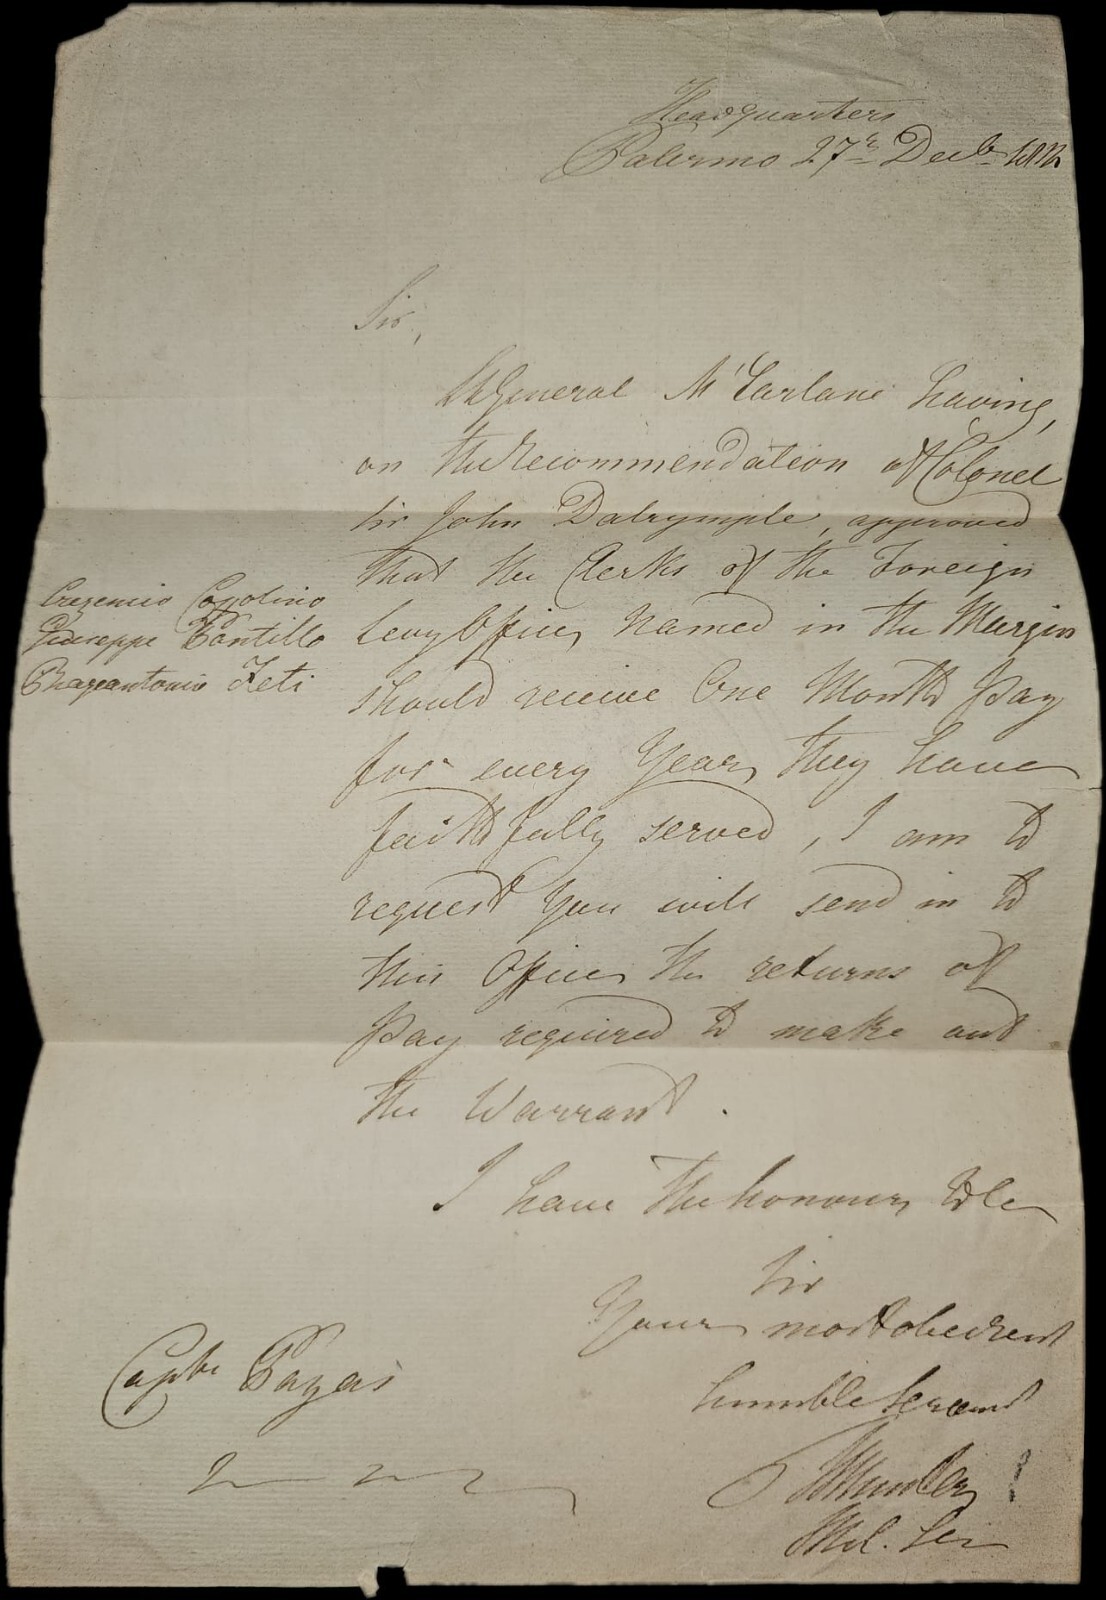 Headquarters
Palermo 27th Decbr
Sir,
General McFarlane having,
on the Recommendation of Colonel
Sir John Dalrymple, approved
that the Clerks of the Foreign
Levy Office, Named in the Margin
Giuseppe Pantillo
should receive One Month Pay
for every Year, they have
faithfully served, I am to
request you will send in to
this Office the returns of
Pay required to make out
the Warrant.
I have the honour, to be
Sir
Your most obedient
humble Servant
Captn
Mil. Sec